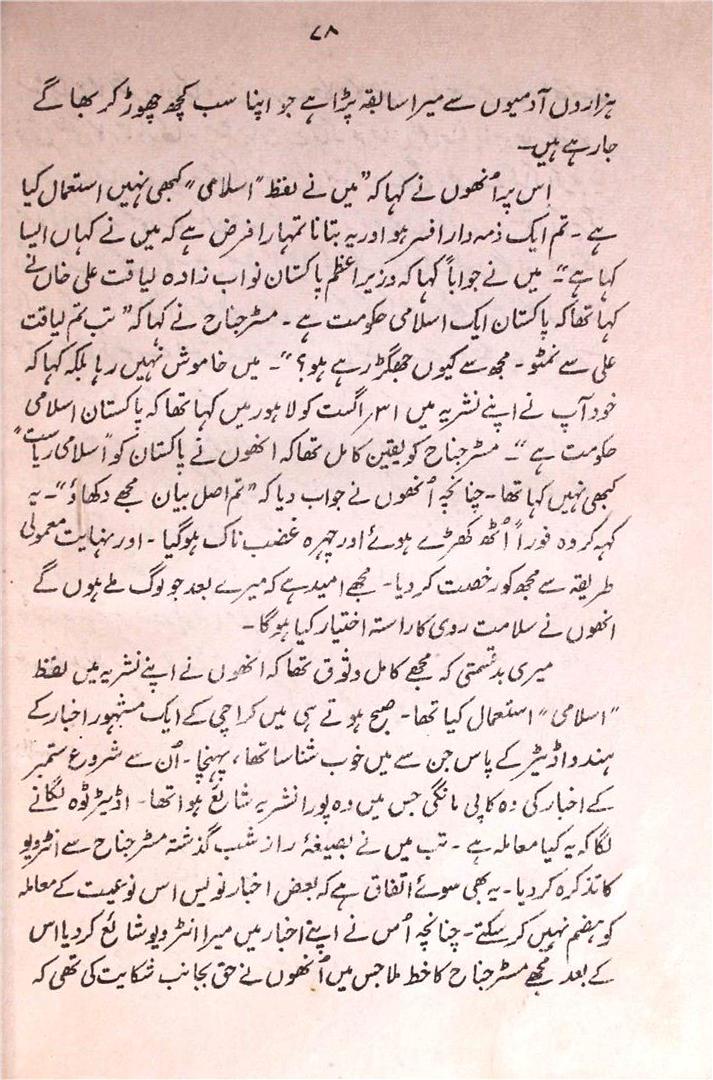 ۷۸
ہزاروں آدمیوں سے میرا سابقہ پڑا ہے جو اپنا سب کچھ چھوڑ کر بھاگے
جا رہے ہیں۔
اِس پر اُنھوں نے کہا کہ ”میں نے لفظ ”اسلامی“ کبھی نہیں استعمال کیا
ہے ۔ تم ایک ذمہ دار افسر ہو اور یہ بتانا تمہارا فرض ہے کہ میں نے کہاں ایسا
کہا ہے“۔ میں نے جواباً کہا کہ وزیر اعظم پاکستان نواب زادہ لیاقت علی خاں نے
کہا تھا کہ پاکستان ایک اسلامی حکومت ہے ۔ مسٹر جناح نے کہا کہ ” تب تم لیاقت
علی سے نمٹو ۔ مجھ سے کیوں جھگڑ رہے ہو؟“۔ میں خاموش نہیں رہا بلکہ کہا کہ
خود آپ نے اپنے نشریہ میں ۳۱ اگست کو لاہور میں کہا تھا کہ پاکستان اسلامی
حکومت ہے “۔ مسٹر جناح کو یقین کامل تھا کہ انھوں نے پاکستان کو ”اسلامی ریاست“
کبھی نہیں کہا تھا ۔ چنانچہ اُنھوں نے جواب دیا کہ ”تم اصل بیان مجھے دکھاؤ“۔ یہ
کہہ کر وہ فوراً اُٹھ کھڑے ہوئے اور چہرہ غضب ناک ہو گیا ۔ اور نہایت معمولی
طریقہ سے مجھ کو رخصت کر دیا ۔ مجھے امید ہے کہ میرے بعد جو لوگ ملے ہوں گے
انھوں نے سلامت روی کا راستہ اختیار کیا ہوگا ۔
میری بدقسمتی کہ مجھے کامل وثوق تھا کہ انھوں نے اپنے نشریہ میں لفظ
”اسلامی“ استعمال کیا تھا ۔ صبح ہوتے ہی میں کراچی کے ایک مشہور اخبار کے
ہندو اڈیٹر کے پاس جن سے میں خوب شناسا تھا ، پہنچا ۔ اُن سے شروع ستمبر
کے اخبار کی وہ کاپی مانگی جس میں وہ پورا نشریہ شائع ہوا تھا ۔ اڈیٹر ٹوہ لگانے
لگا کہ یہ کیا معاملہ ہے ۔ تب میں نے بصیغۂ راز شب گذشتہ مسٹر جناح سے انٹرویو
کا تذکرہ کر دیا ۔ یہ بھی سوئے اتفاق ہے کہ بعض اخبار نویس اس نوعیت کے معاملہ
کو ہضم نہیں کر سکتے ۔ چنانچہ اُس نے اپنے اخبار میں میرا انٹرویو شائع کر دیا اس
کے بعد مجھے مسٹر جناح کا خط ملا جس میں اُنھوں نے حق بجانب شکایت کی تھی کہ